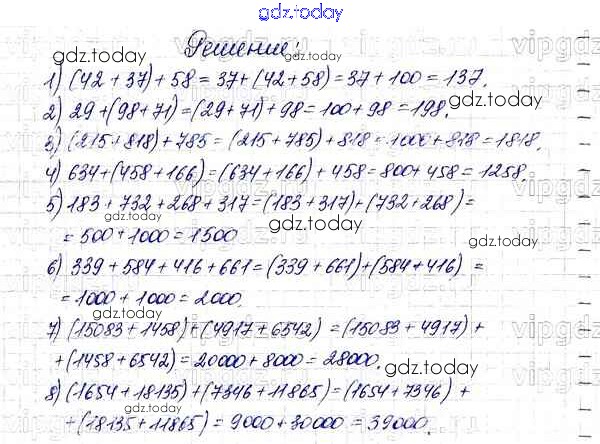 gdz.today
Решение:
1) (42 + 37) + 58 = 37 + (42 + 58) = 37 + 100 = 137.
2) 29 + (98 + 71) = (29 + 71) + 98 = 100 + 98 = 198.
3) (215 + 818) + 785 = (215 + 785) + 818 = 1000 + 818 = 1818.
4) 634 + (458 + 166) = (634 + 166) + 458 = 800 + 458 = 1258.
5) 183 + 732 + 268 + 317 = (183 + 317) + (732 + 268) =
= 500 + 1000 = 1500
6) 339 + 584 + 416 + 661 = (339 + 661) + (584 + 416) =
= 1000 + 1000 = 2000.
7) (15083 + 1458) + (4917 + 6542) = (15083 + 4917) +
+ (1458 + 6542) = 20000 + 8000 = 28000.
8) (1654 + 18135) + (7346 + 11865) = (1654 + 7346) +
+ (18135 + 11865) = 9000 + 30000 = 39000.